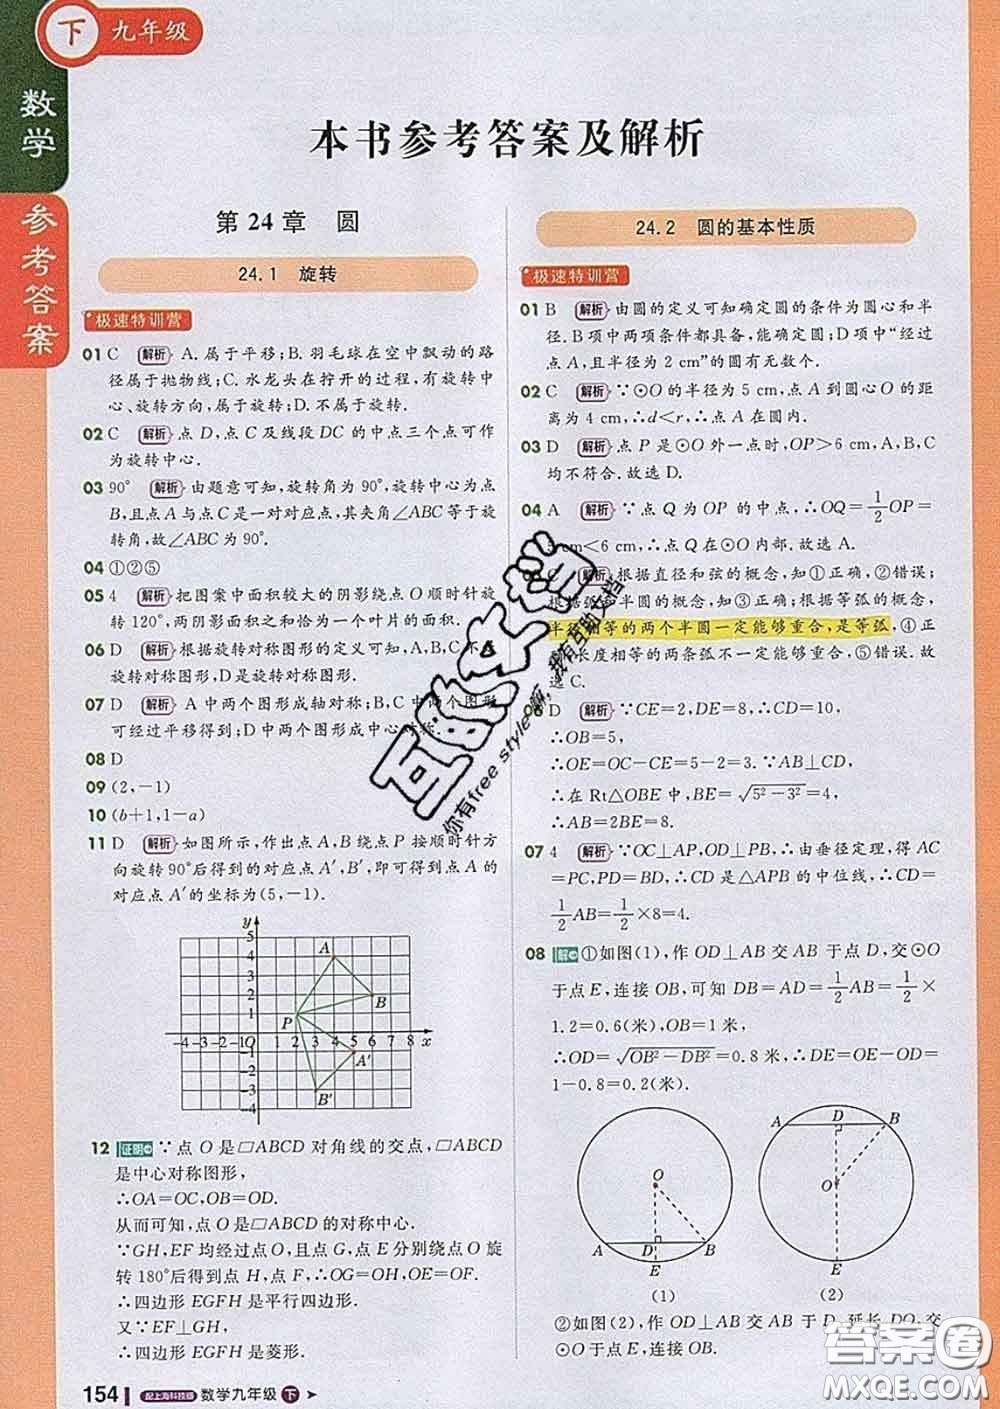 下 九年级
数学
参考答案
本书参考答案及解析
第24章 圆
24.1 旋转
极速特训营
01 C 解析 A.属于平移;B.羽毛球在空中飘动的路
径属于抛物线;C.水龙头在拧开的过程,有旋转中
心、旋转方向,属于旋转;D.不属于旋转.
02 C 解析 点D,点C及线段DC的中点三个点可作
为旋转中心.
03 90° 解析 由题意可知,旋转角为90°,旋转中心为点
B,且点A与点C是一对对应点,其夹角∠ABC等于旋
转角,故∠ABC为90°.
04 ①②⑤
05 4 解析 把图案中面积较大的阴影绕点O顺时针旋
转120°,两阴影面积之和恰为一个叶片的面积.
06 D 解析 根据旋转对称图形的定义可知,A,B,C不是
旋转对称图形,D是旋转对称图形.
07 D 解析 A中两个图形成轴对称;B,C中两个图形
可经过平移得到;D中两个图形成中心对称.
08 D
09 (2,-1)
10 (b+1,1-a)
11 D 解析 如图所示,作出点A,B绕点P按顺时针方
向旋转90°后得到的对应点A′,B′,即可得到点A的
对应点A′的坐标为(5,-1).
y
5
4
3
2
1
-4 -3 -2 -1 O 1 2 3 4 5 6 7 8 x
-1
-2
-3
-4
A
B
P
A′
B′
12 证明 ∵点O是□ABCD对角线的交点,□ABCD
是中心对称图形,
∴OA=OC,OB=OD.
从而可知,点O是□ABCD的对称中心.
∵GH,EF均经过点O,且点G,点E分别绕点O旋
转180°后得到点H,点F,∴OG=OH,OE=OF.
∴四边形EGFH是平行四边形.
又∵EF⊥GH,
∴四边形EGFH是菱形.
24.2 圆的基本性质
极速特训营
01 B 解析 由圆的定义可知确定圆的条件为圆心和半
径.B项中两项条件都具备,能确定圆;D项中“经过
点A,且半径为2 cm”的圆有无数个.
02 C 解析 ∵⊙O的半径为5 cm,点A到圆心O的距
离为4 cm,∴d<r,∴点A在圆内.
03 D 解析 点P是⊙O外一点时,OP>6 cm,A,B,C
均不符合.故选D.
04 A 解析 ∵点Q为OP的中点,∴OQ=1/2OP=
5 cm<6 cm,∴点Q在⊙O内部.故选A.
05 C 解析 根据直径和弦的概念,知①正确,②错误;
根据弧和半圆的概念,知③正确;根据等弧的概念,
半径相等的两个半圆一定能够重合,是等弧,④正
长度相等的两条弧不一定能够重合,⑤错误.故
选C.
06 D 解析 ∵CE=2,DE=8,∴CD=10,
∴OB=5,
∴OE=OC-CE=5-2=3.∵AB⊥CD,
∴在Rt△OBE中,BE=√(5²-3²)=4,
∴AB=2BE=8.
07 4 解析 ∵OC⊥AP,OD⊥PB,∴由垂径定理,得AC
=PC,PD=BD,∴CD是△APB的中位线,∴CD=
1/2AB=1/2×8=4.
08 解 ①如图(1),作OD⊥AB交AB于点D,交⊙O
于点E,连接OB,可知DB=AD=1/2AB=1/2×
1.2=0.6(米),OB=1米,
∴OD=√(OB²-DB²)=0.8米,∴DE=OE-OD=
1-0.8=0.2(米).
O
A D B
E
(1)
A D B
O
E
(2)
②如图(2),作OD⊥AB交AB于D,延长DO,交
⊙O于点E,连接OB.
154 配上海科技版 数学九年级 下
互助文档
你有free style啊,我有互助文档
答案圈
MXQE.COM